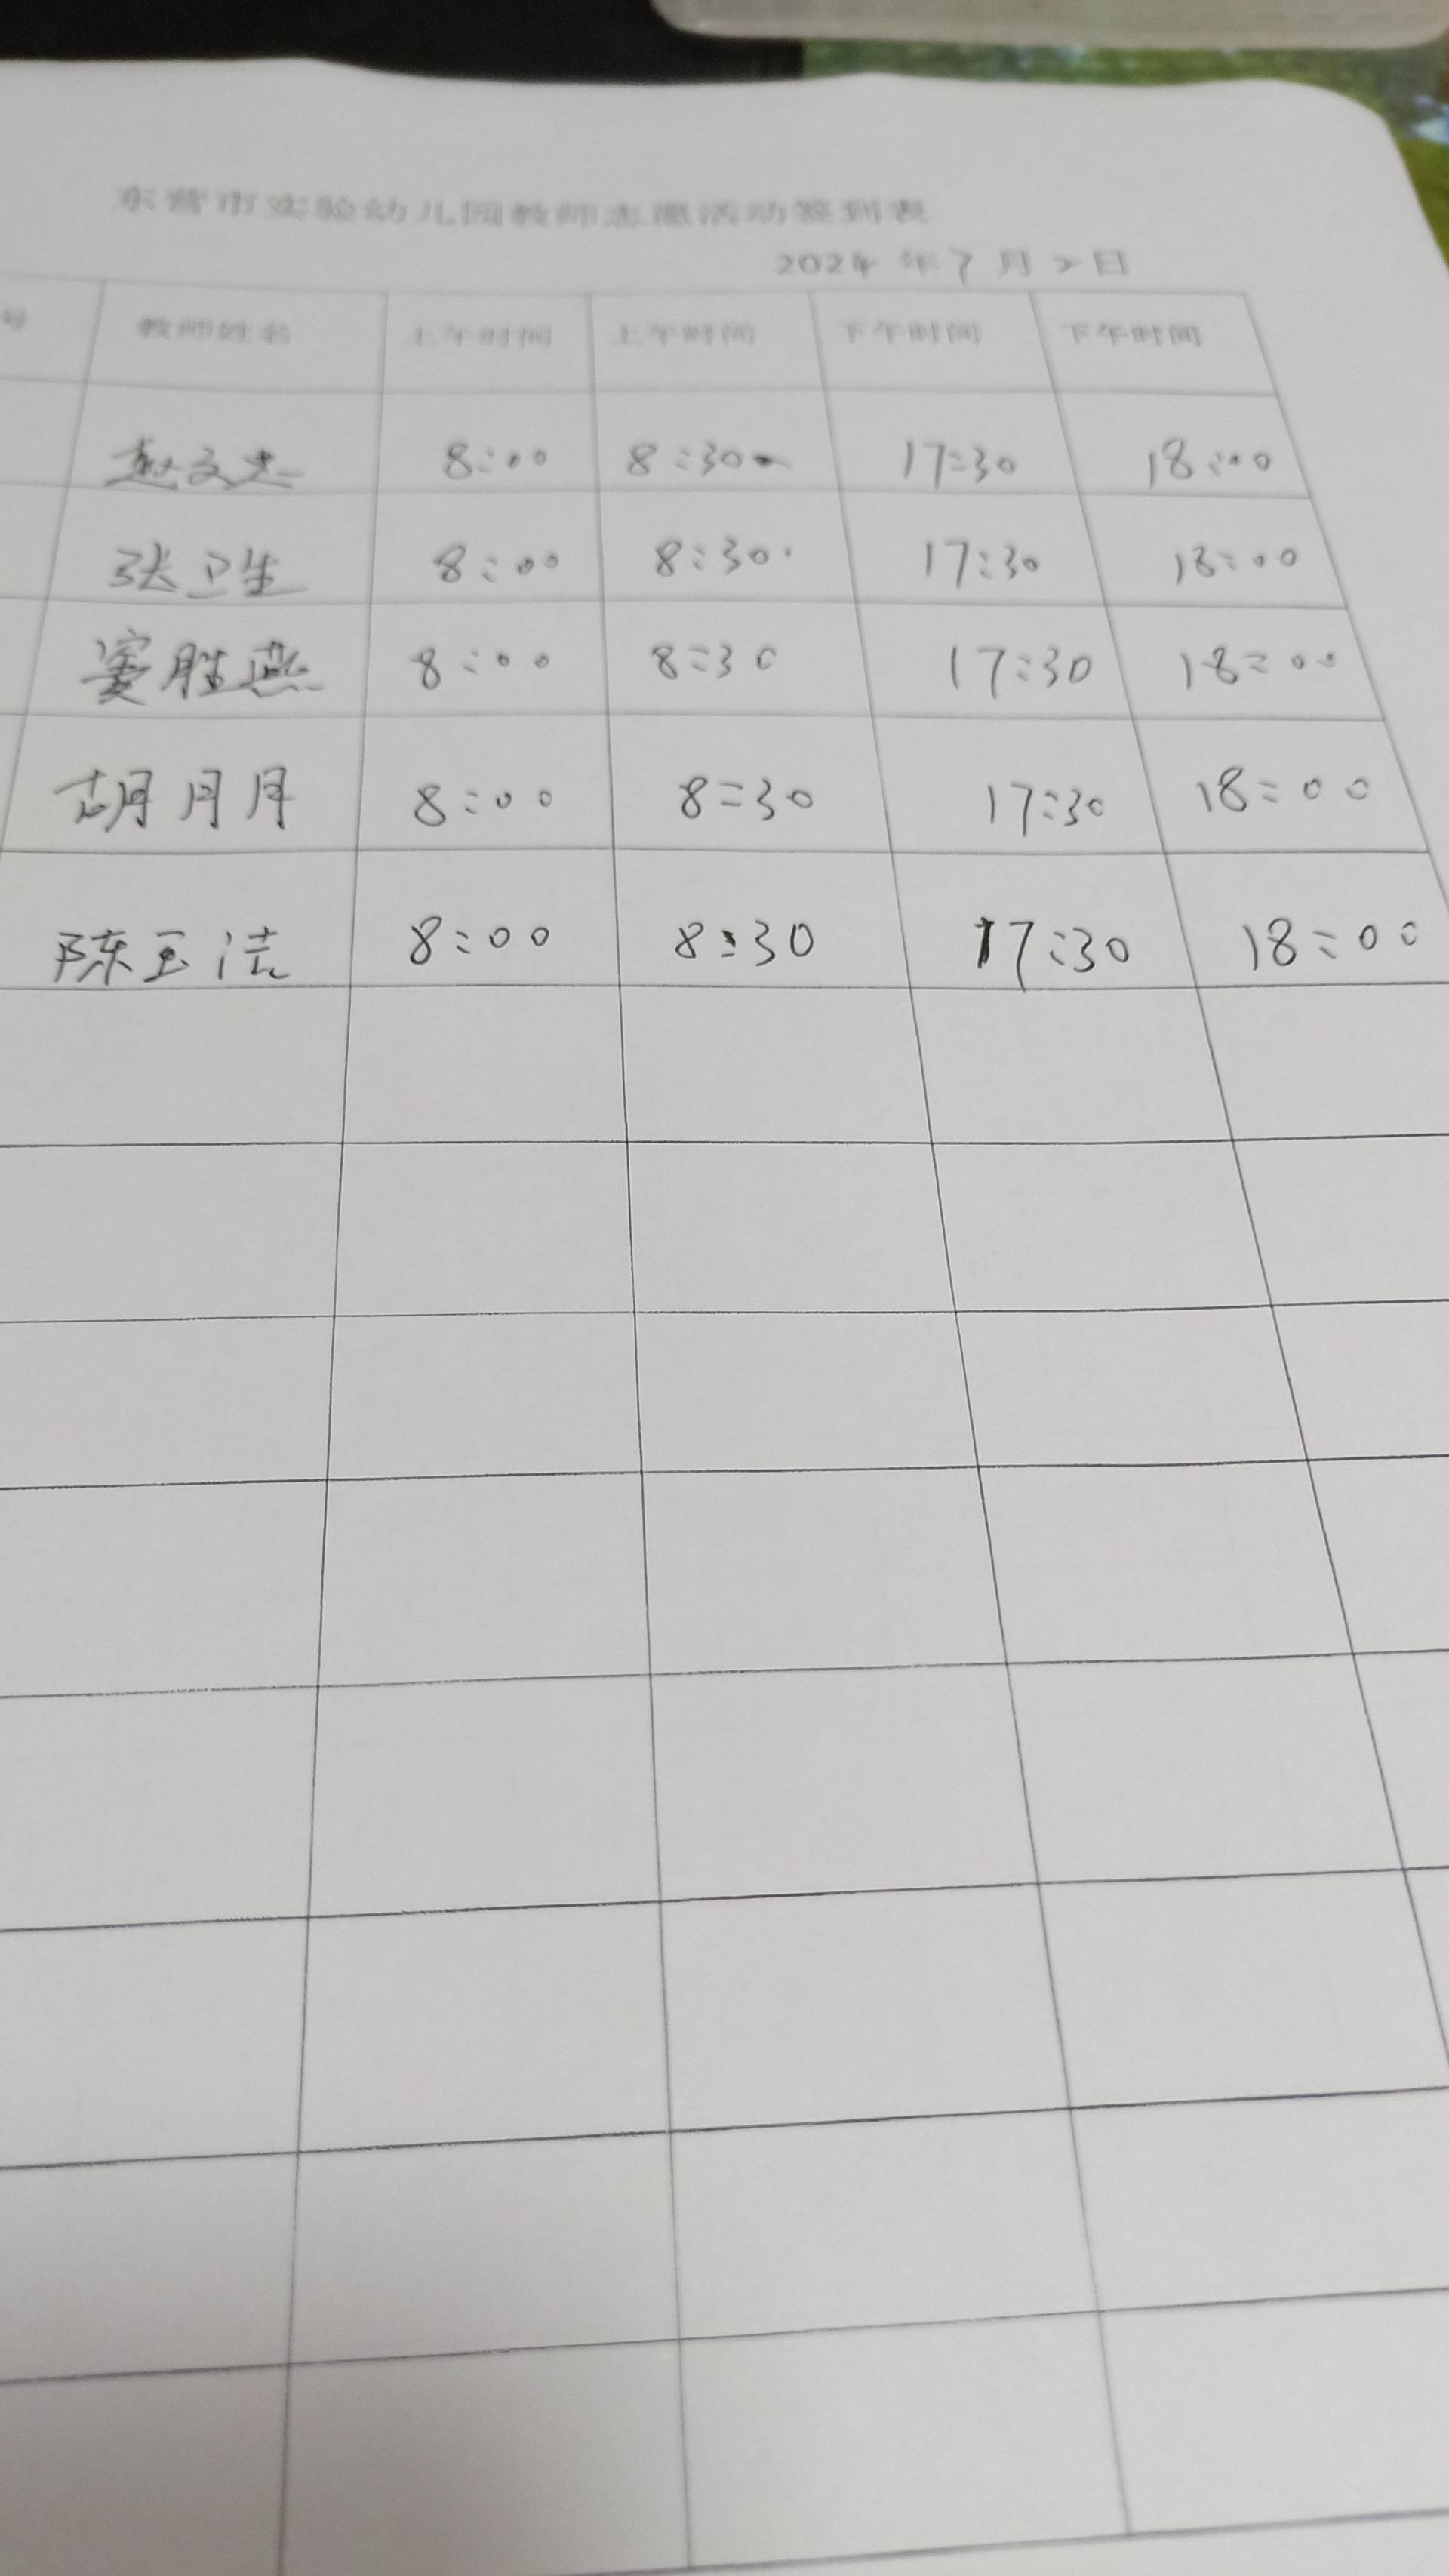 东营市实验幼儿园教师志愿活动签到表
2024 年 7 月 2 日
号 教师姓名 上午时间 上午时间 下午时间 下午时间
赵文杰 8:00 8:30 17:30 18:00
张卫生 8:00 8:30 17:30 18:00
胜燕 8:00 8:30 17:30 18:00
胡月月 8:00 8:30 17:30 18:00
陈玉洁 8:00 8:30 17:30 18:00